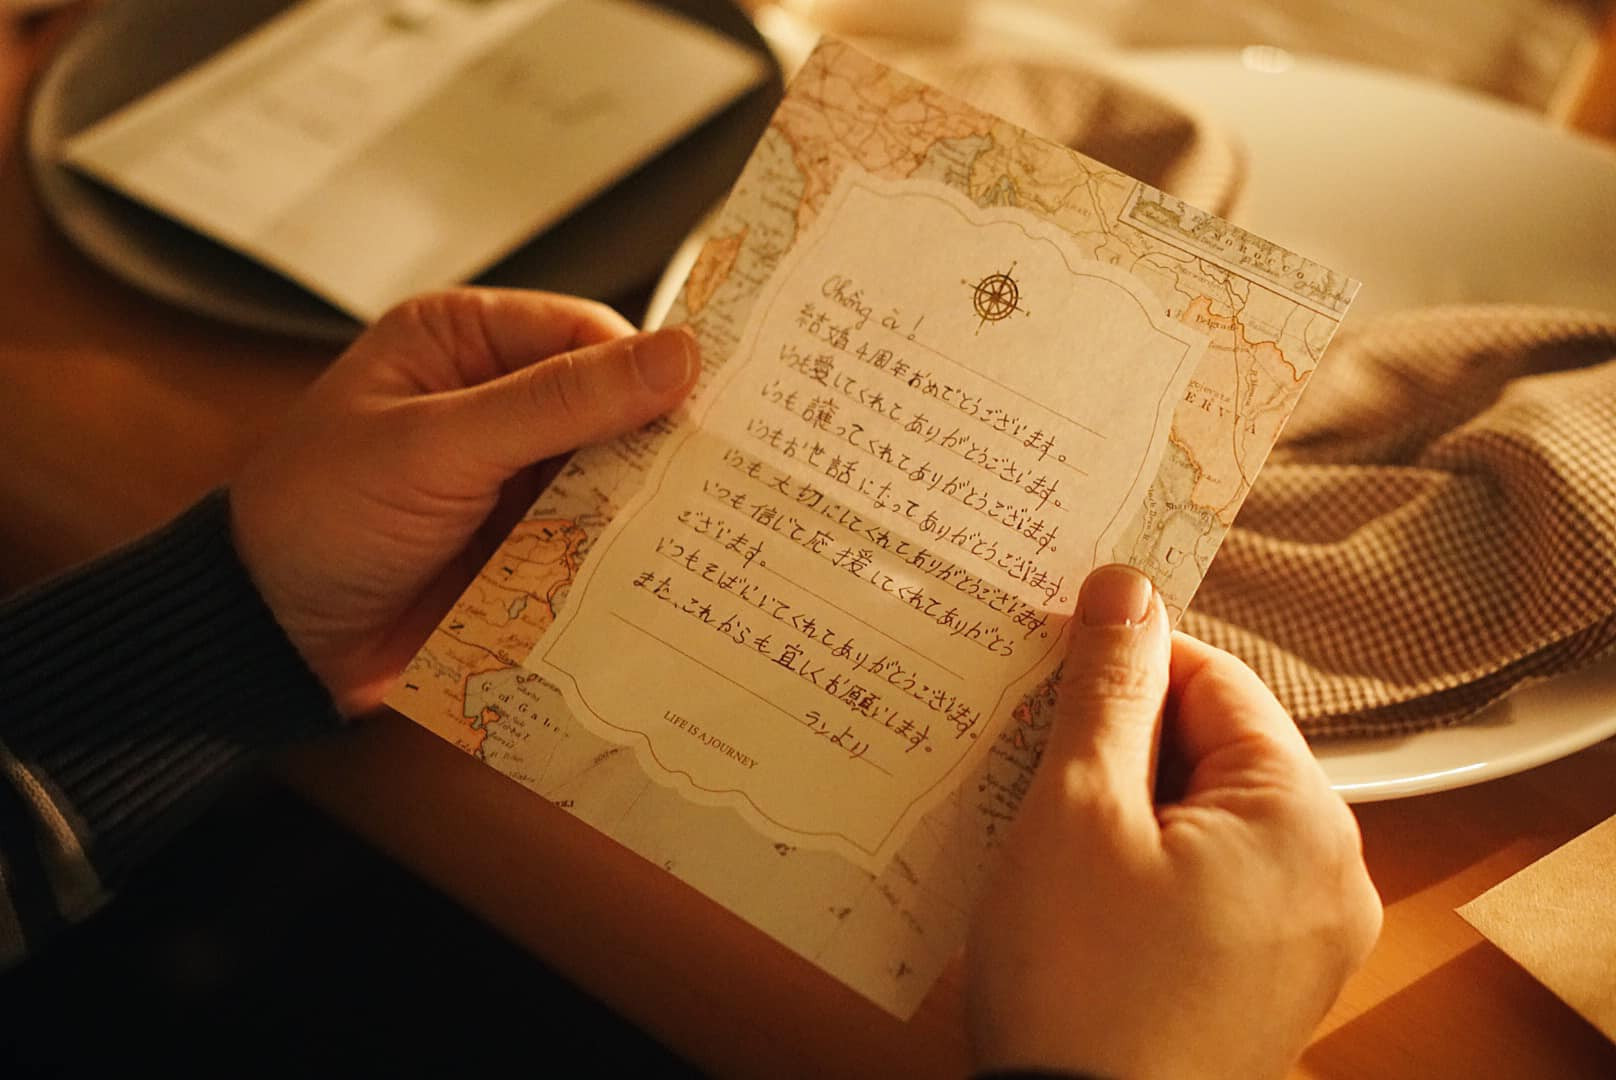 Chồng à!
結婚4周年おめでとうございます。
いつも愛してくれてありがとうございます。
いつも譲ってくれてありがとうございます。
いつもお世話になってありがとうございます。
いつも大切にしてくれてありがとうございます。
いつも信じて応援してくれてありがとう
ございます。
いつもそばにいてくれてありがとうございます。
また、これからも宜しくお願いします。
ランより
LIFE IS A JOURNEY
MOROCCO
Belgrade
SERVIA
U
G. of Gabes